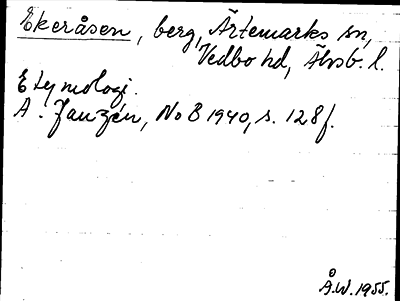 Ekeråsen, berg, Ärtemarks sn,
Vedbo hd, Älvsb. l.
Etymologi.
A. Janzén, NoB 1940, s. 128f.
Å.W. 1955.